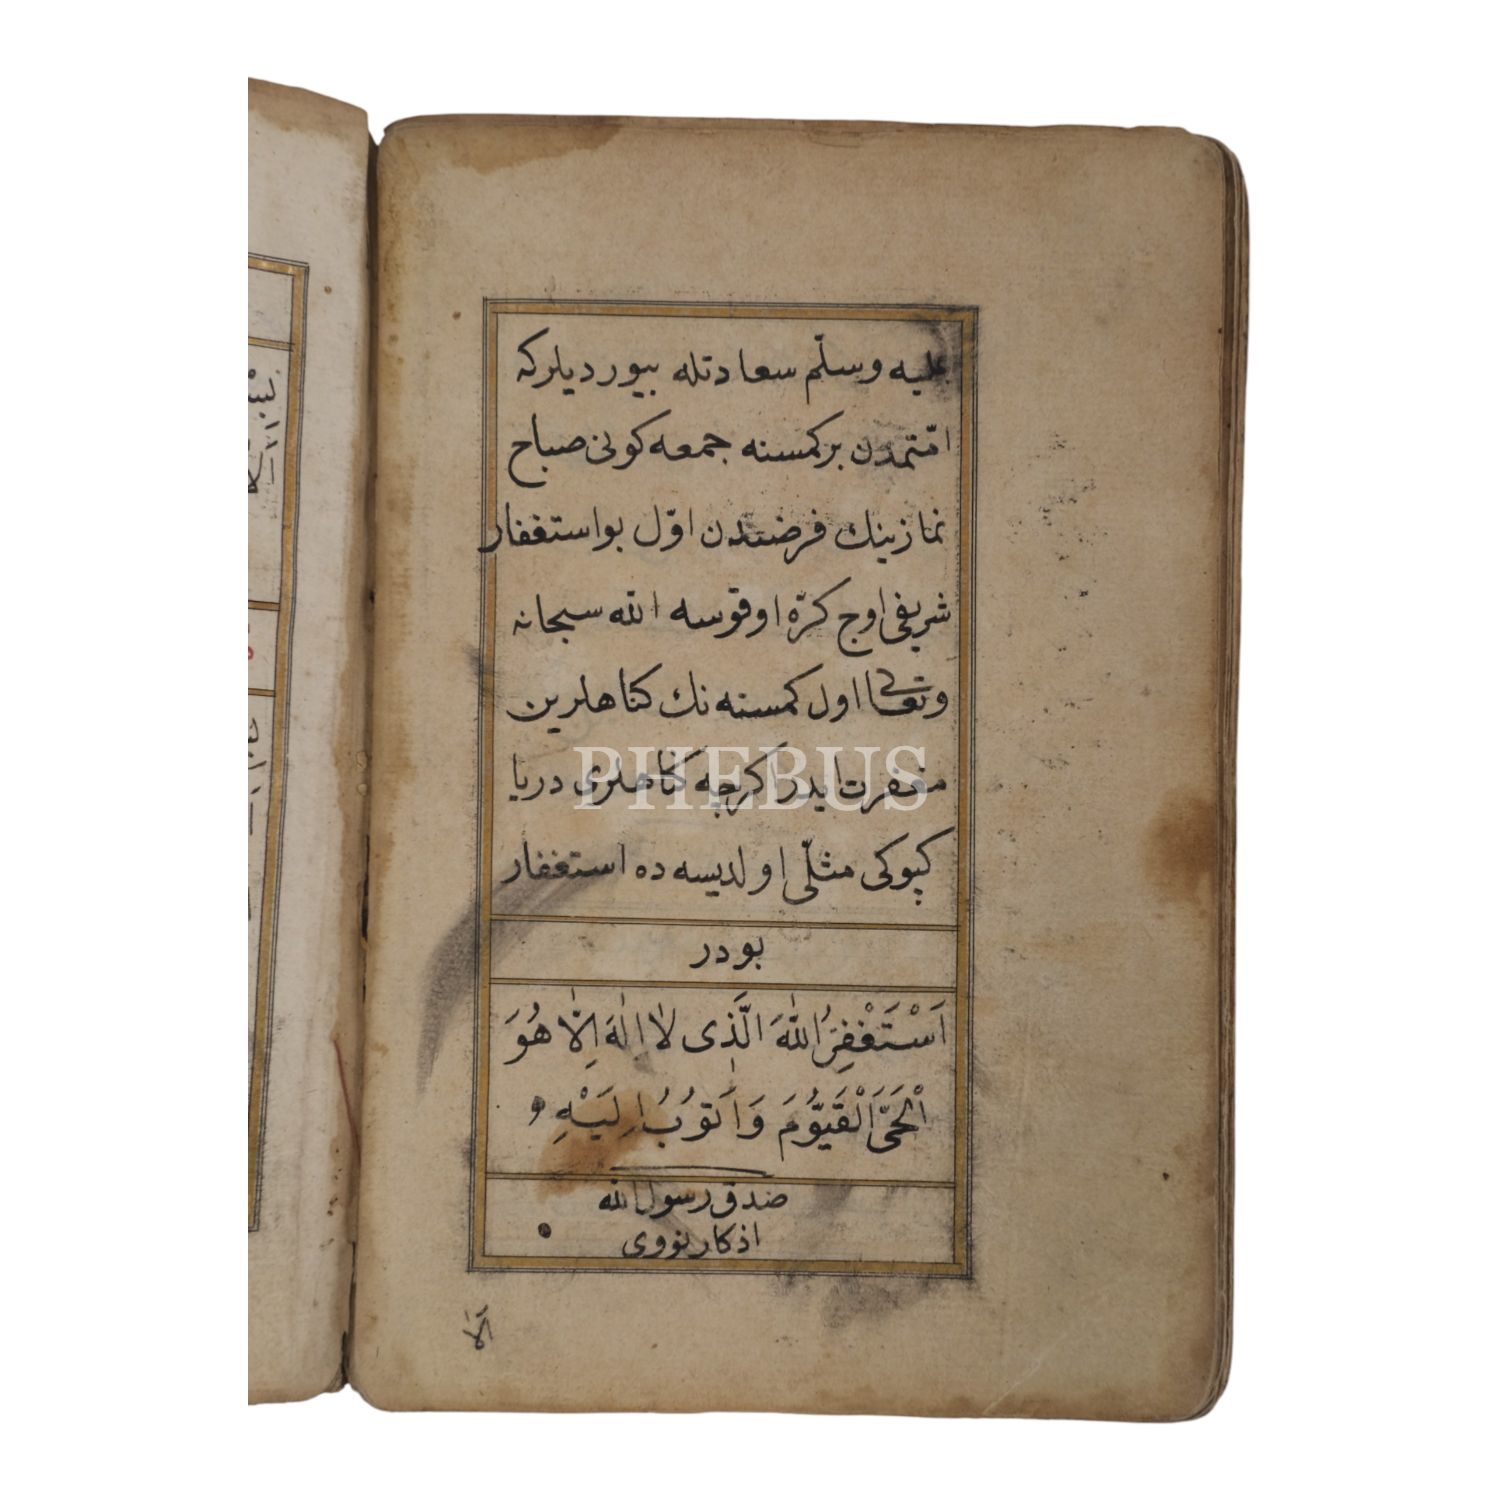 عليه وسلّم سعادتله بيورديلركه
امّتمدن بركمسنه جمعه كونى صباح
نمازينك فرضندن اوّل بو استغفار
شريفى اوج كرّه اوقوسه الله سبحانه
وتعالى اول كمسنه نك كناهلرين
مغفرت ايدر اكرچه كناهلرى دريا
كپوكى مثلّى اولديسه ده استغفار
بودر
اَسْتَغْفِرُ اللّٰهَ الَّذٖى لٰا اِلٰهَ اِلّٰا هُوَ
اْلحَىَّ اَلْقَيُّومَ وَاَتوُبُ اِلَيْهِ
صدق رسول الله
اذكار نووى
اَلاٰ
PHEBUS